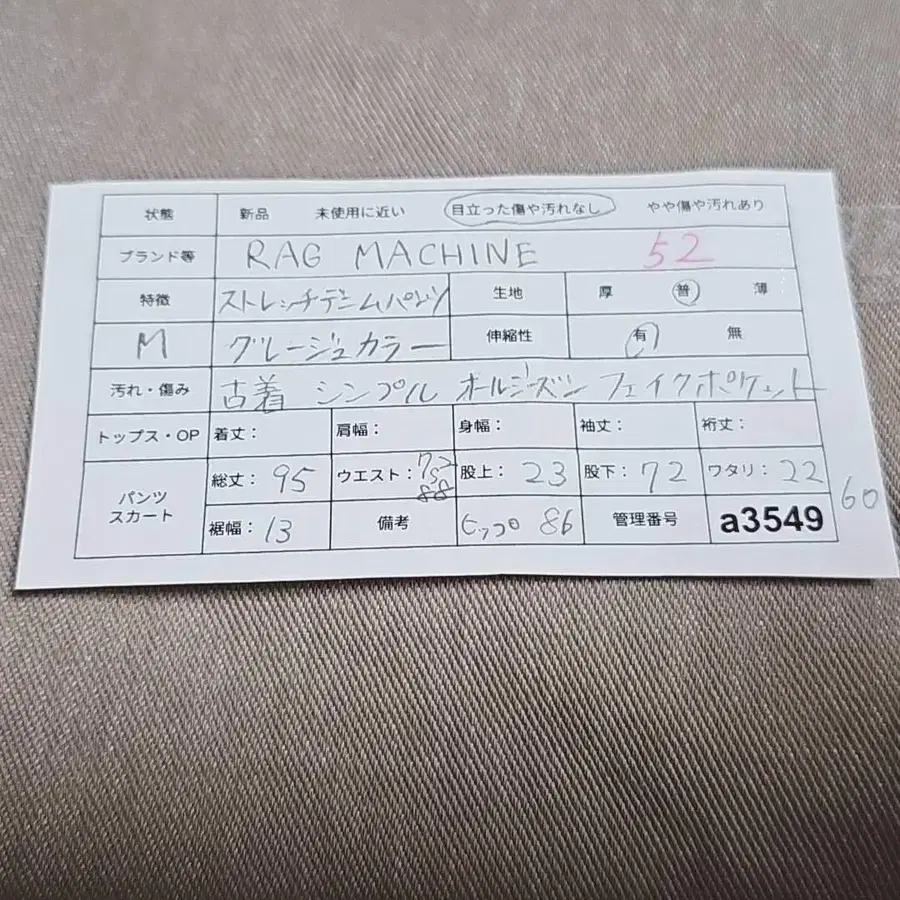 状態 新品 未使用に近い 目立った傷や汚れなし やや傷や汚れあり
ブランド等 RAG MACHINE 52
特徴 ストレッチデニムパンツ 生地 厚 普 薄
M グレージュカラー 伸縮性 有 無
汚れ・傷み 古着 シンプル オールシーズン フェイクポケット
トップス・OP 着丈： 肩幅： 身幅： 袖丈： 裄丈：
パンツ スカート 総丈：95 ウエスト： 88 股上：23 股下：72 ワタリ：22
60
裾幅：13 備考 ヒップ 86 管理番号 a3549